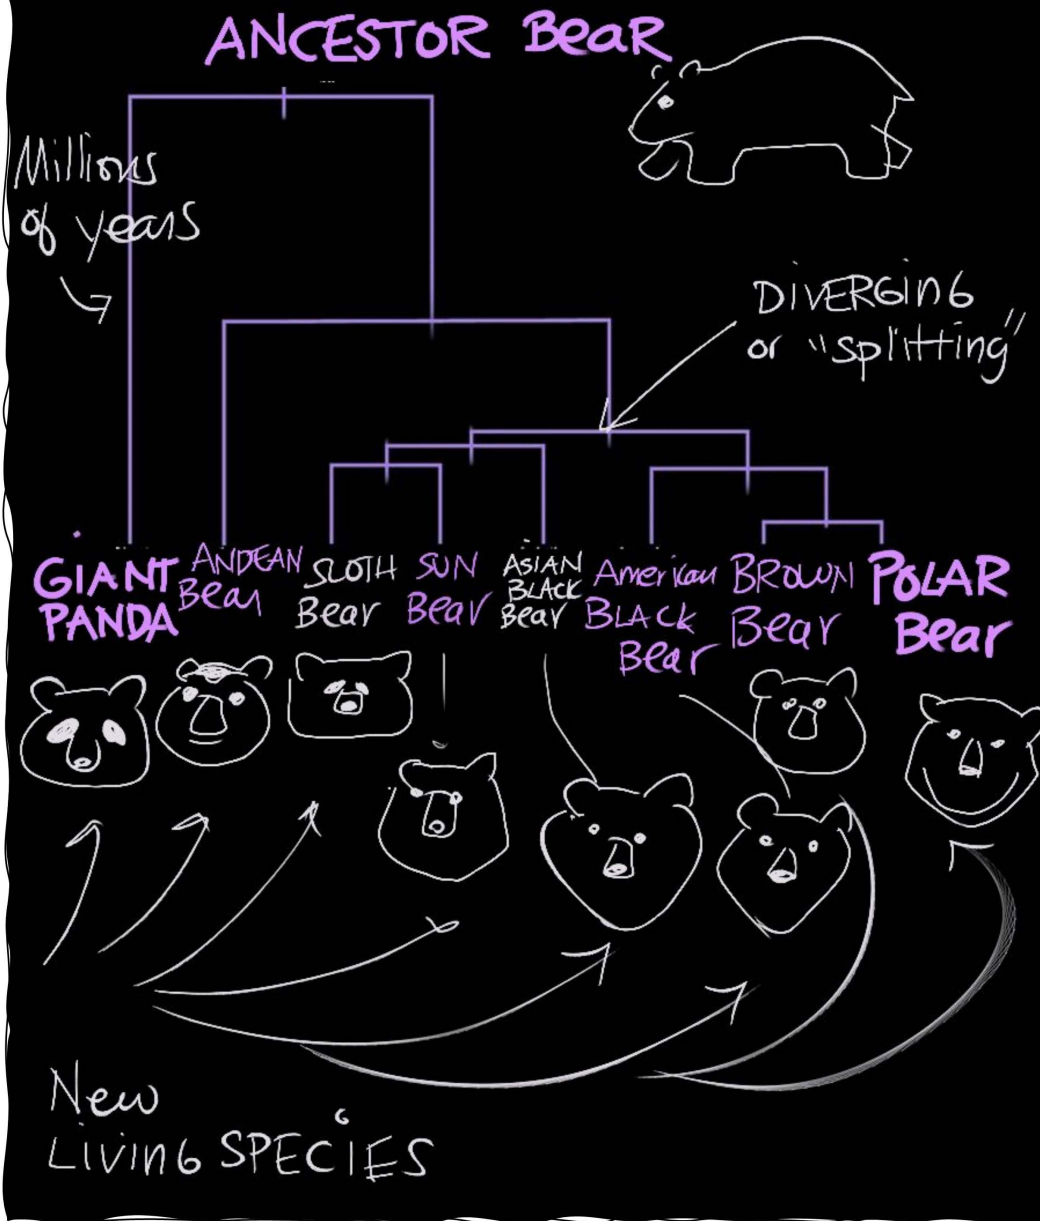 ANCESTOR BeaR
Millions
of years
DiVERGinG
or "splitting"
GIANT
PANDA
ANDEAN
Bear
SLOTH
Bear
SUN
Bear
ASIAN
BLACK
Bear
American
BLACK
Bear
BROWN
Bear
POLAR
Bear
New
LivinG SPECiES